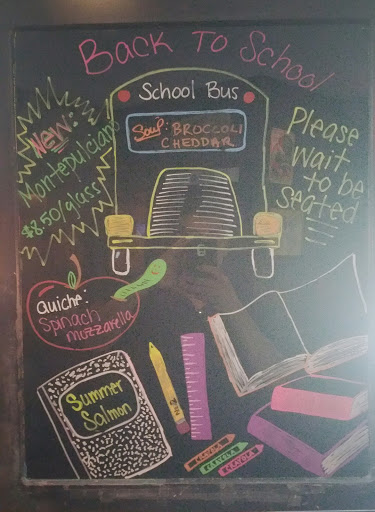 Back To School
School Bus
Soup: BROCCOLI
CHEDDAR
New:
Montepulciano
$8.50/glass
Please
wait
to be
seated
Quiche:
Spinach
mozzarella
Summer
Salmon
CRAYOLA
CRAYOLA
CRAYOLA